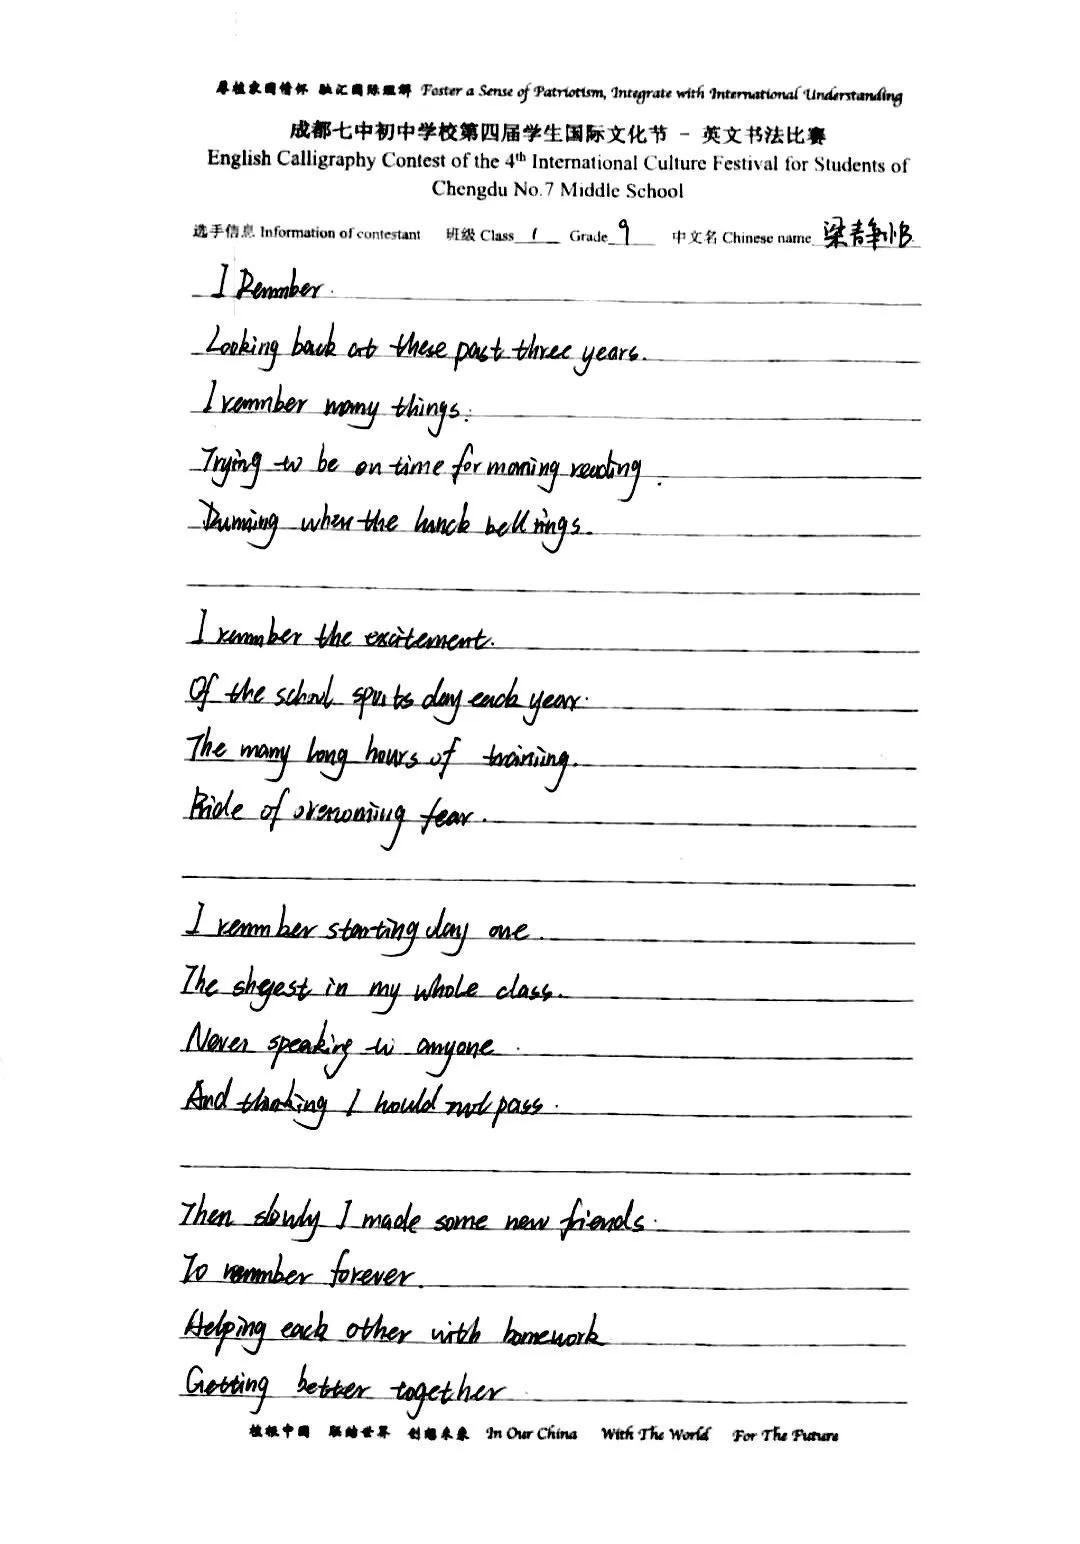 厚植家国情怀 融汇国际理解 Foster a Sense of Patriotism, Integrate with International Understanding
成都七中初中学校第四届学生国际文化节 - 英文书法比赛
English Calligraphy Contest of the 4th International Culture Festival for Students of
Chengdu No.7 Middle School
选手信息 Information of contestant 班级 Class 1 Grade 9 中文名 Chinese name 梁青
I Remmber.
Looking back at these past three years.
I remmber many things.
Trying to be on time for morning reading.
Running when the bell rings.
I remmber the excitement.
Of the school sports day each year.
The many long hours of training.
Pride of overcoming fear.
I remmber starting day one.
The shyest in my whole class.
Never speaking to anyone.
And thinking I would not pass.
Then slowly I made some new friends.
To remmber forever.
Helping each other with homework
Getting better together.
植根中国 联结世界 创想未来 In Our China With The World For The Future